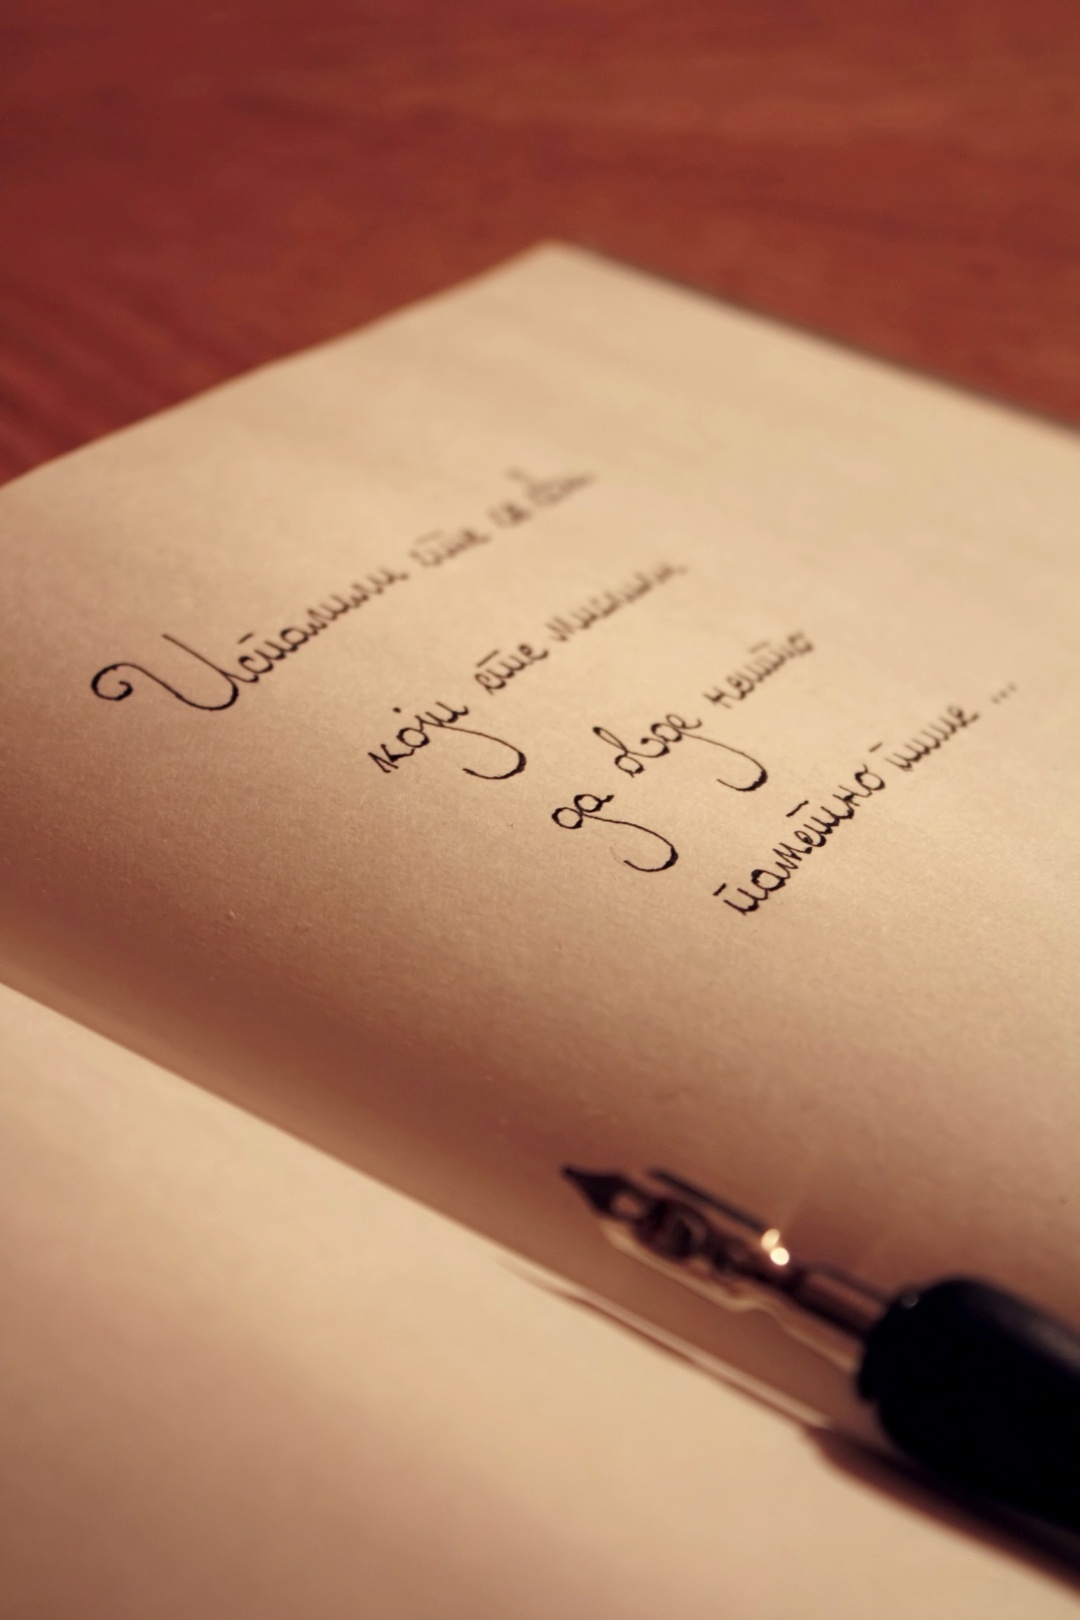 Испалили сте се сви
који сте мислили
да овде нешто
паметно пише ...